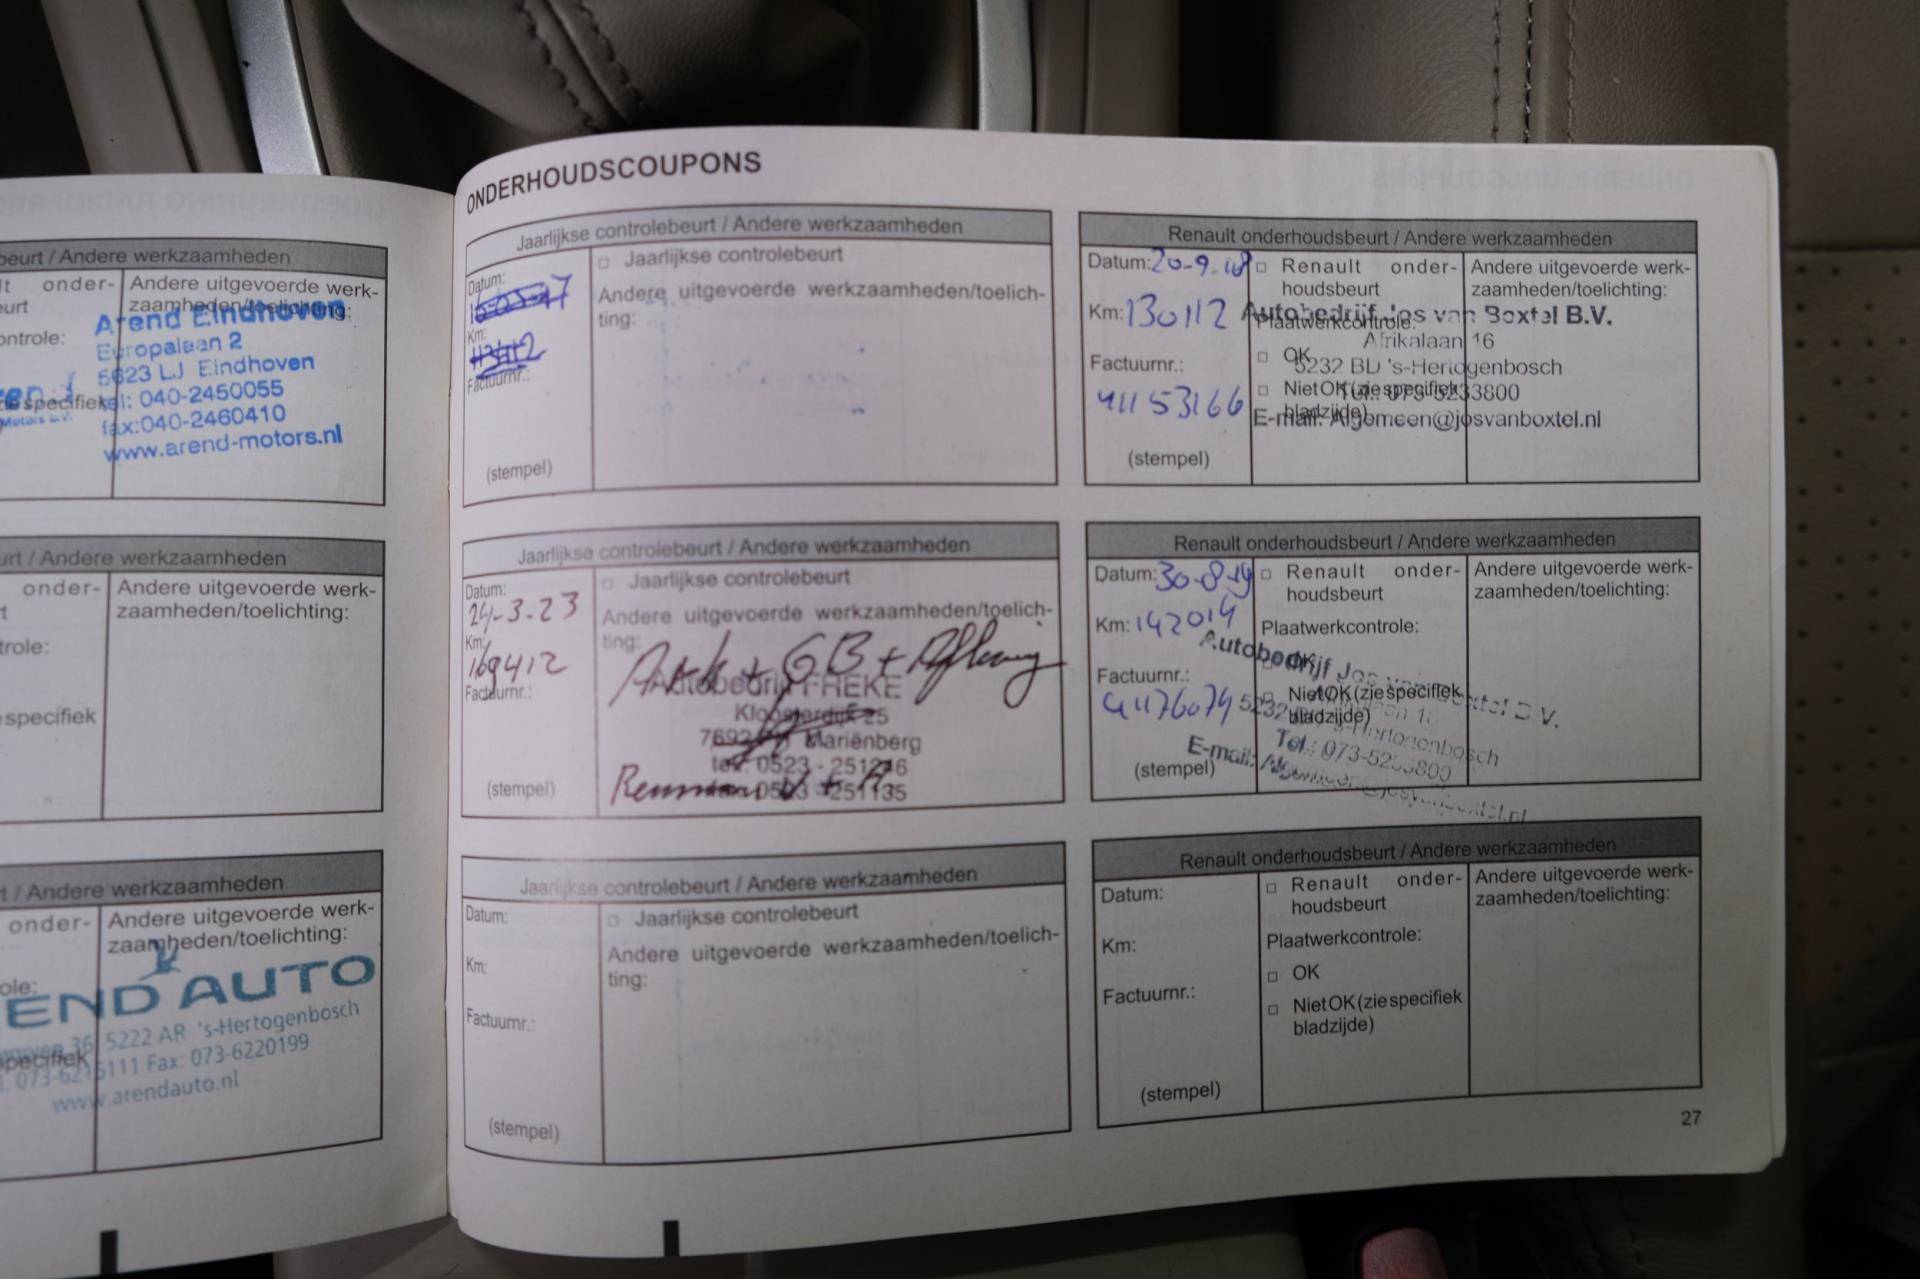 beurt / Andere werkzaamheden
onder-
eurt
Andere uitgevoerde werk-
zaamheden/toelichting:
ontrole:
Arend Eindhoven
Europalaan 2
5623 LJ Eindhoven
tel: 040-2450055
fax:040-2460410
www.arend-motors.nl
de specifiek
Motors b.v.
urt / Andere werkzaamheden
onder-
Andere uitgevoerde werk-
zaamheden/toelichting:
role:
specifiek
t / Andere werkzaamheden
onder-
Andere uitgevoerde werk-
zaamheden/toelichting:
ole:
END AUTO
36 5222 AR 's-Hertogenbosch
specifiek
Fax: 073-6220199
www.arendauto.nl
ONDERHOUDSCOUPONS
Jaarlijkse controlebeurt / Andere werkzaamheden
Datum:
Km:
Factuurnr.:
(stempel)
□ Jaarlijkse controlebeurt
Andere uitgevoerde werkzaamheden/toelich-
ting:
Renault onderhoudsbeurt / Andere werkzaamheden
Datum: 20-9-18
Km: 130112
Factuurnr.:
41153166
(stempel)
□ Renault onder-
houdsbeurt
Plaatwerkcontrole:
□ OK
□ Niet OK (zie specifiek
bladzijde)
Andere uitgevoerde werk-
zaamheden/toelichting:
Autobedrijf Jos van Boxtel B.V.
Afrikalaan 16
5232 BD 's-Hertogenbosch
Tel.: 073-5233800
E-mail: Algemeen@josvanboxtel.nl
Jaarlijkse controlebeurt / Andere werkzaamheden
Datum:
24-3-23
Km:
169412
Factuurnr.:
(stempel)
□ Jaarlijkse controlebeurt
Andere uitgevoerde werkzaamheden/toelich-
ting:
+ GB +
Autobedrijf FREKE
Kloosterdijk 25
7692 Mariënberg
tel. 0523 - 251246
0523 - 251135
Renault onderhoudsbeurt / Andere werkzaamheden
Datum: 30-8-19
Km: 142014
Factuurnr.:
41176079
(stempel)
□ Renault onder-
houdsbeurt
Plaatwerkcontrole:
OK
□ Niet OK (zie specifiek
bladzijde)
Andere uitgevoerde werk-
zaamheden/toelichting:
Autobedrijf Jos van Boxtel B.V.
5232 's-Hertogenbosch
Tel.: 073-5233800
E-mail: Algemeen@josvanboxtel.nl
Jaarlijkse controlebeurt / Andere werkzaamheden
Datum:
Km:
Factuurnr.:
(stempel)
□ Jaarlijkse controlebeurt
Andere uitgevoerde werkzaamheden/toelich-
ting:
Renault onderhoudsbeurt / Andere werkzaamheden
Datum:
Km:
Factuurnr.:
(stempel)
□ Renault onder-
houdsbeurt
Plaatwerkcontrole:
□ OK
□ Niet OK (zie specifiek
bladzijde)
Andere uitgevoerde werk-
zaamheden/toelichting:
27